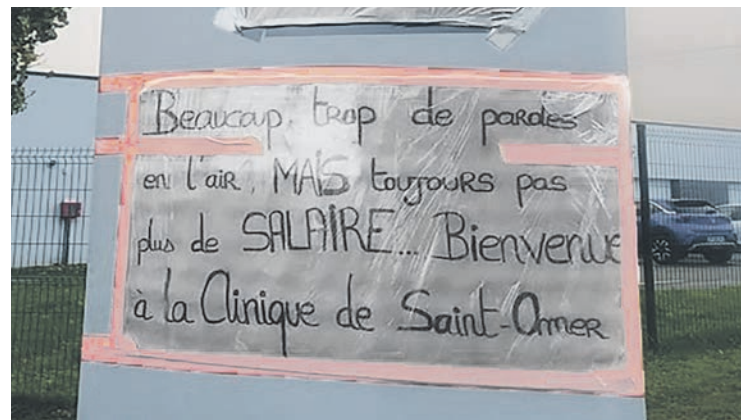 Beaucoup trop de paroles
en l'air, MAIS toujours pas
plus de SALAIRE... Bienvenue
à la Clinique de Saint-Omer